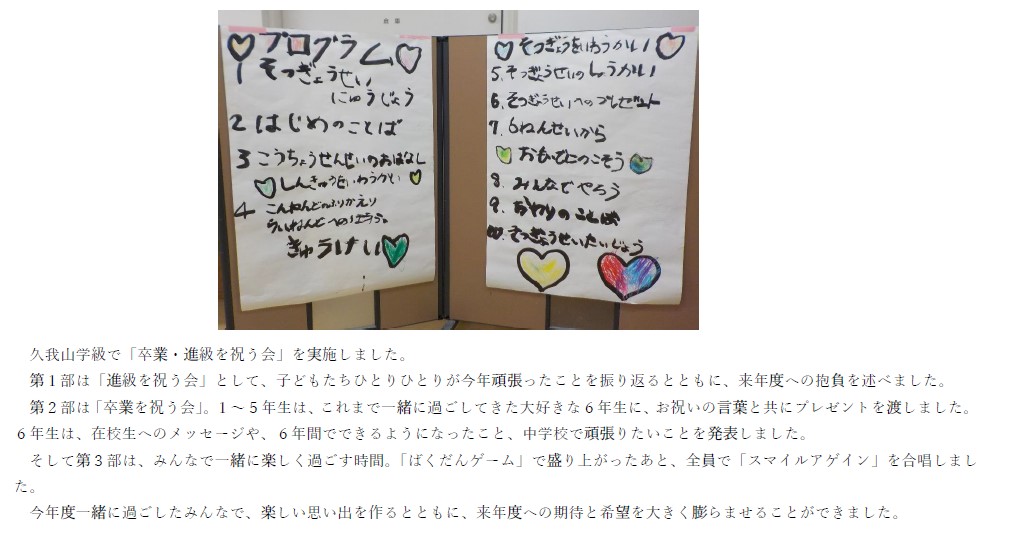 プログラム
1 そつぎょうせい
にゅうじょう
2 はじめのことば
3 こうちょうせんせいのおはなし
しんきゅうをいわうかい
4 こんねんどのふりかえり
らいねんどへのほうふ
きゅうけい
そつぎょうをいわうかい
5.そつぎょうせいのしょうかい
6.そつぎょうせいへのプレゼント
7.6ねんせいから
おもいでにのこそう
8.みんなでやろう
9.おわりのことば
10.そつぎょうせいたいじょう
久我山学級で「卒業・進級を祝う会」を実施しました。
第1部は「進級を祝う会」として、子どもたちひとりひとりが今年頑張ったことを振り返るとともに、来年度への抱負を述べました。
第2部は「卒業を祝う会」。1～5年生は、これまで一緒に過ごしてきた大好きな6年生に、お祝いの言葉と共にプレゼントを渡しました。
6年生は、在校生へのメッセージや、6年間でできるようになったこと、中学校で頑張りたいことを発表しました。
そして第3部は、みんなで一緒に楽しく過ごす時間。「ばくだんゲーム」で盛り上がったあと、全員で「スマイルアゲイン」を合唱しまし
た。
今年度一緒に過ごしたみんなで、楽しい思い出を作るとともに、来年度への期待と希望を大きく膨らませることができました。